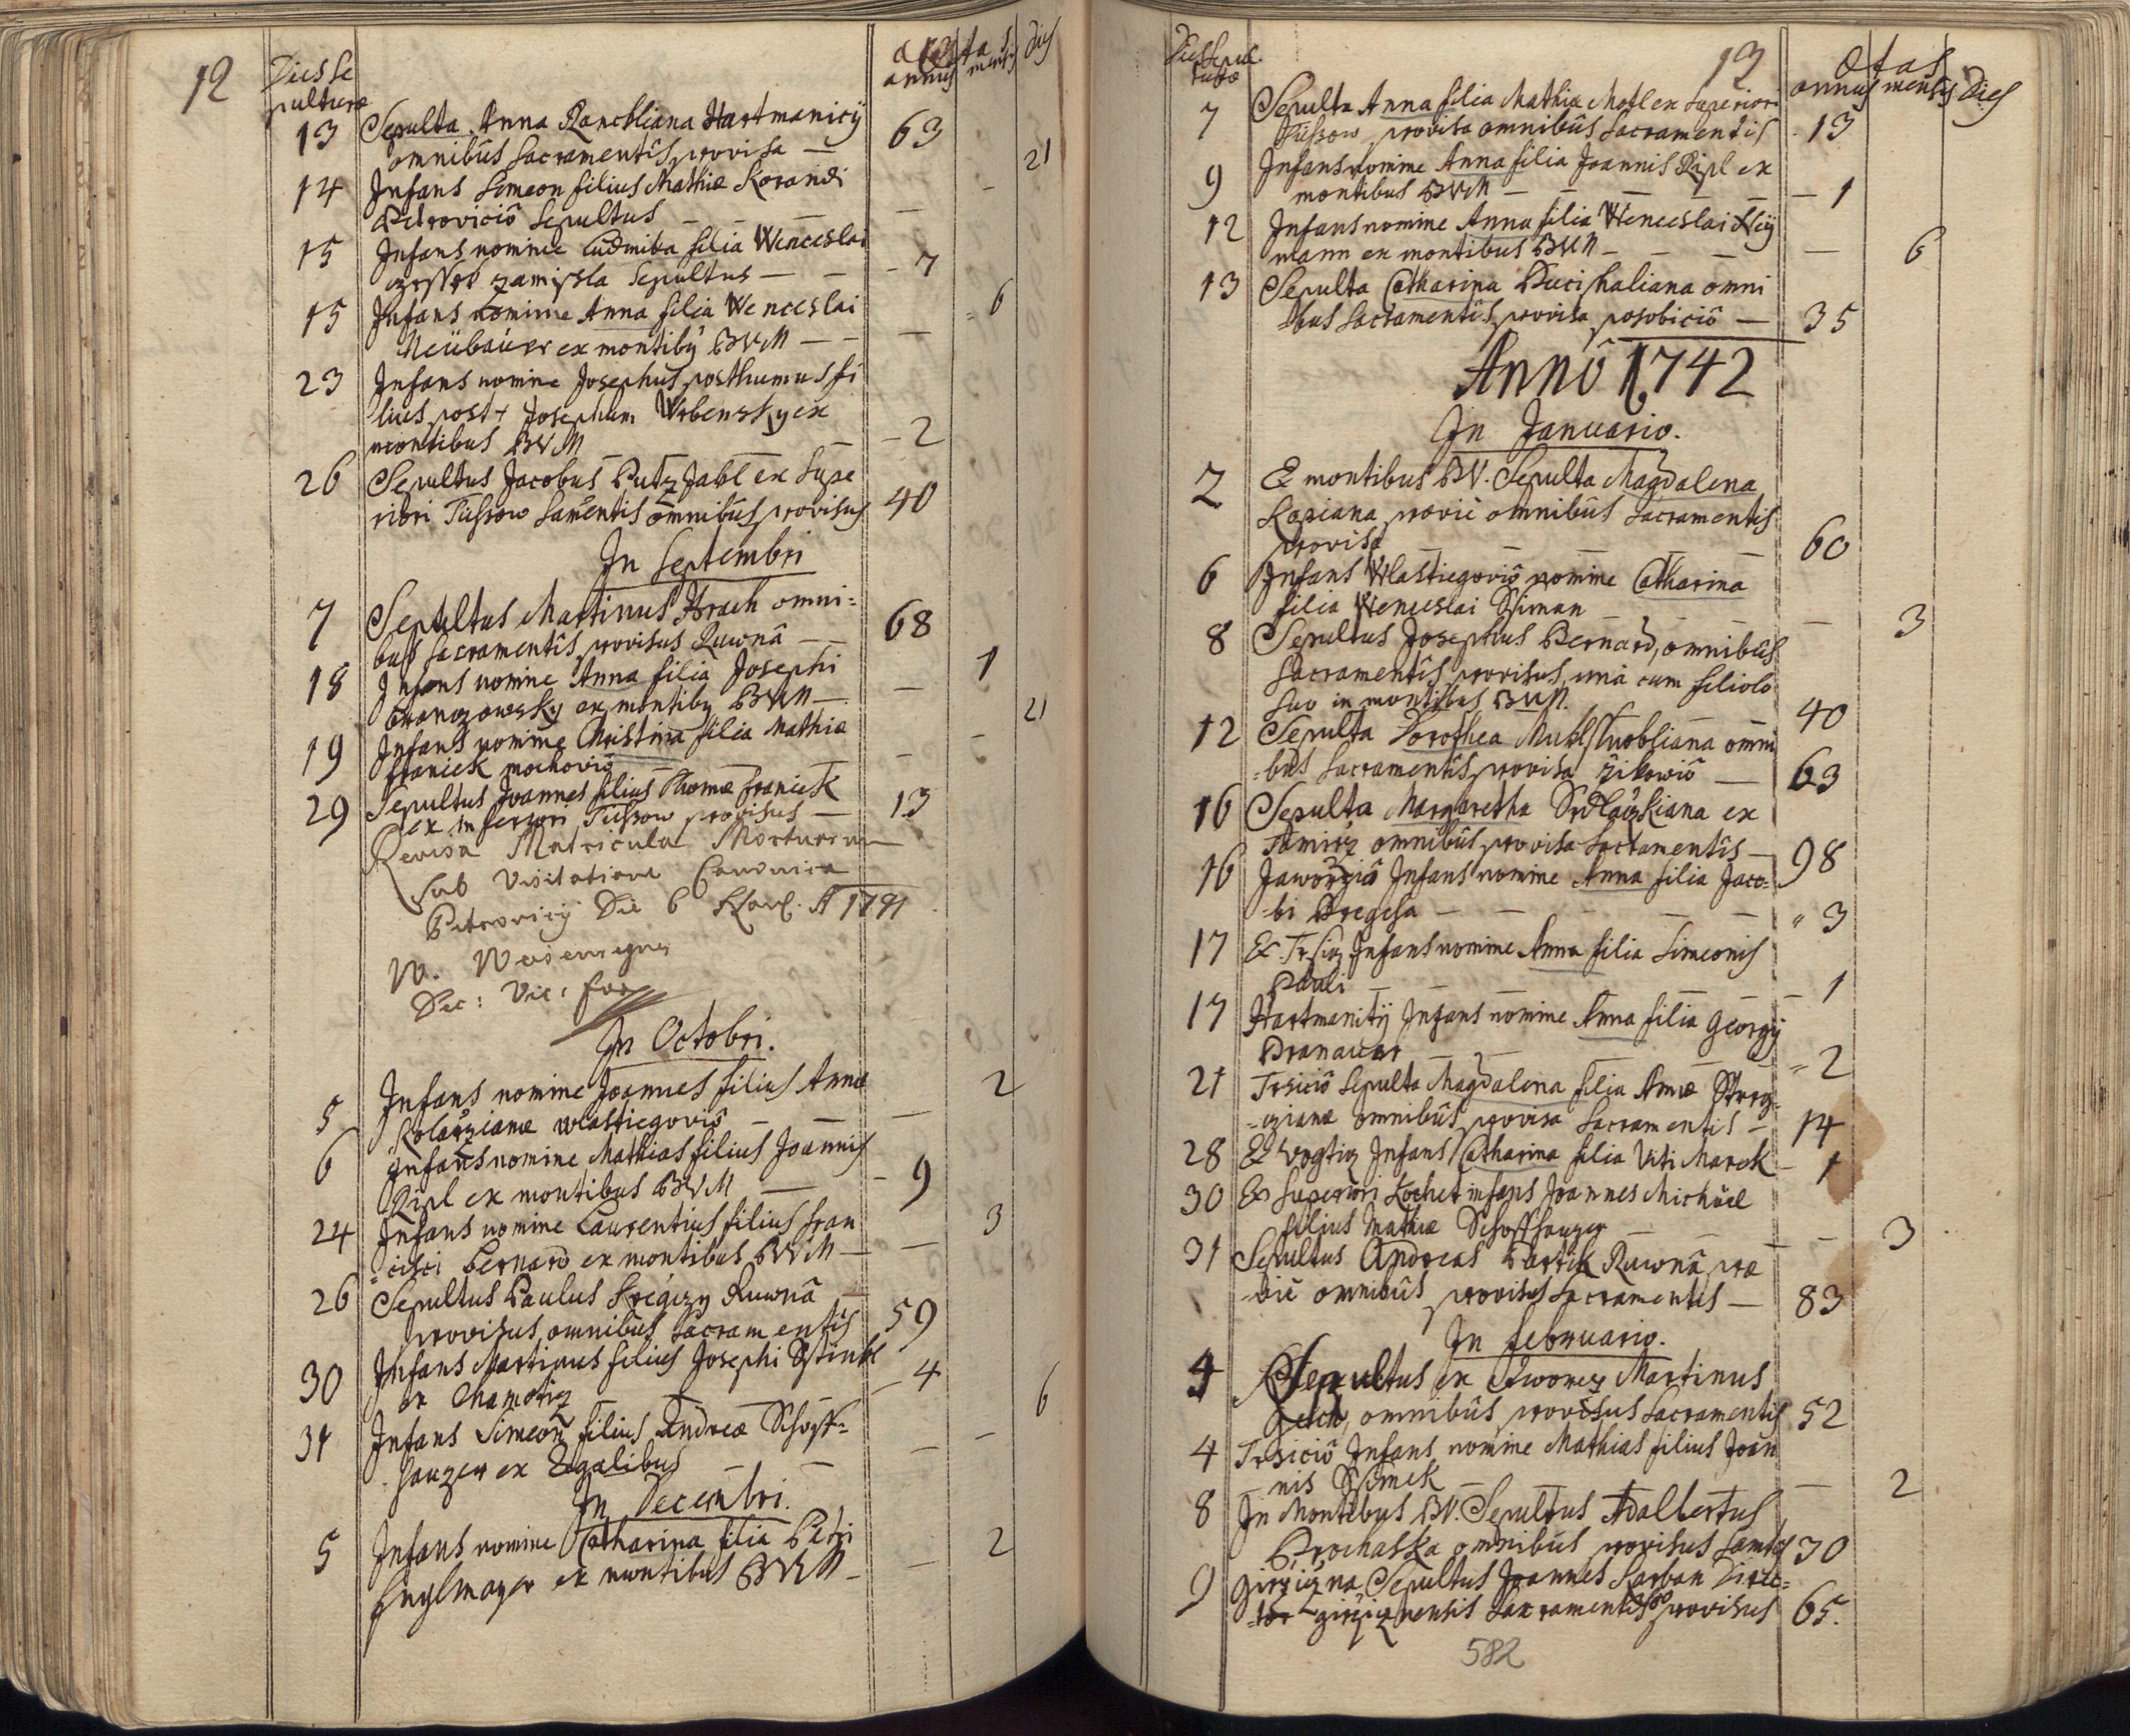 12
Dies Se
pulturæ
ætas
annus mensis dies
13 Sepulta Anna Ranckliana Hartmanicÿ 63
omnibus Sacramentis provisa —
14 Infans Simeon filius Mathiæ Korandi - 21
Petroviciô Sepultus — — —
15 Infans nomine Ludmila filia Wenceslai
zamisla Sepultus — — - 7
15 Infans nomine Anna filia Wenceslai = 6
Neübaüer ex montibq BVM — — —
23 Infans nomine Josephus posthumus fi
lius post + Josephum Wrbensky ex
montibus BVM — — - 2
26 Sepultus Jacobus Putz Jabl ex Supe
riori Tiessow Samentis omnibus provisus 40
In Septembri
7 Sepultus Martinus Hrach omni=
bus Sacramentis provisus Ruwnâ — 68
18 Infans nomine Anna filia Josephi 1
ex montibq BVM — —
19 Infans nomine Christina filia Mathiæ - 21
Franiek mochoviô — —
29 Sepultus Joannes filius Thomæ Franiek
ex inferiori Tiessow provisus — 13
Revisa Matricula Mortuorum
sub Visitatione Canonica
Petrovicÿ Die 6 A 1741
W.
Dec: Vic: For
In Octobri.
5 Infans nomine Joannes filius Annæ 2
Kolarzianæ wlastiegoviô — — —
6 Infans nomine Mathias filius Joannis
Ripl ex montibus BVM — - 9
24 Infans nomine Laurentius filius Fran 3
=cisci Bernard ex montibus BVM — —
26 Sepultus Paulus Kregizy Ruwnâ
provisus omnibus Sacramentis 59
30 Infans Martinus filius Josephi Stinkl
ex Chamotiz — — - 4
31 Infans Simeon filius Andreæ Schoff= 6
hauzer ex Regalibus — — — -
In Decembri.
5 Infans nomine Catharina filia Petri 2
Englmayer ex montibus BVM — —
13
Dies Sepul
turæ
ætas
annus mensis Dies
7 Sepulta Anna filia Mathiæ Motl ex Superiori
Tiessow provisa omnibus Sacramentis 13
9 Infans nomine Anna filia Joannis Ripl ex
montibus BVM — — — — 1
12 Infans nomine Anna filia Wenceslai Neÿ
mann ex montibus BVM — — — — 6
13 Sepulta Catharina omni
bus Sacramentis provisa posobiciô — 35
Annô 1742
In Januario.
2 E montibus BV. Sepulta Magdalena
Kopiana provie omnibus Sacramentis
provisa — — — — 60
6 Infans Wlastiegoviô nomine Catharina
filia Wenceslai Ssiman — — 3
8 Sepultus Josephus Bernard, omnibus
Sacramentis provisus, unà cum filiolo
suo in montibus BVM. 40
12 Sepulta Dorothea omni
=bus Sacramentis provisa Žikowiô — 63
16 Sepulta Margaretha Sedlaczkiana ex
omnibus provisa Sacramentis — 98
16 Jaworziô Infans nomine Anna filia Jaco=
=bi Dregsa — — — — " 3
17 Ex Trsicz Infans nomine Anna filia Simeonis
Pauli — — — — - 1
17 Hartmanitÿ Infans nomine Anna filia Georgÿ
Pranauer — — — = 2
21 Trsiciô Sepulta Magdalena filia Annæ
=zianæ omnibus provisa Sacramentis — 14
28 E Wogtiz Infans Catharina filia Viti Marek - 1
30 Ex Superiori Kochet infans Joannes Michäel
filius Mathiæ Schoffhauzer — — — 3
31 Sepultus Andreas Bartik Ruwnâ præ
=viè omnibus provisus Sacramentis — 83
In Februario.
4 Sepultus ex Dworecz Martinus
omnibus provisus Sacramentis 52
4 Trsiciô Infans nomine Mathias filius Joan
nis Ssimek — — — — 2
8 In Montibus BV. Sepultus Adalbertus
Prochaska omnibus provisus Samtis 30
9 Girziczna Sepultus Joannes Karban Direc=
=tor girzicznensis Sacramentis provisus 65.
582